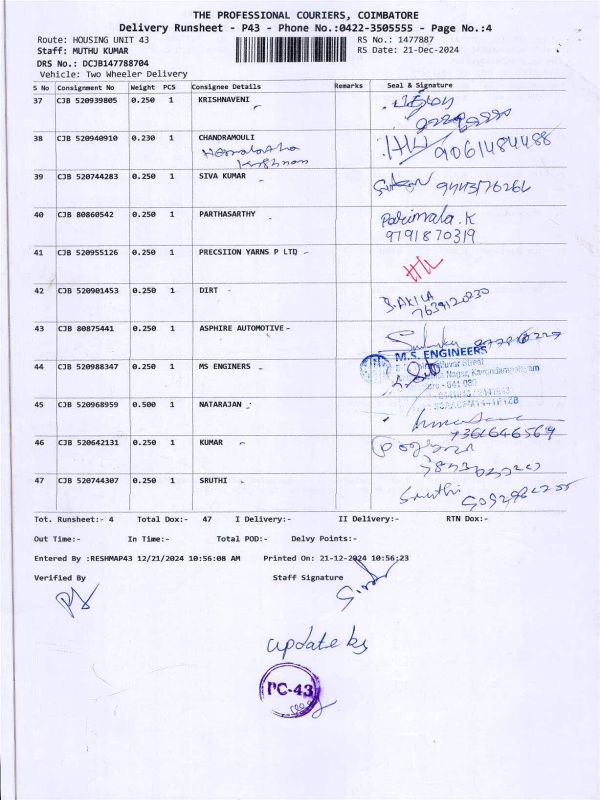 THE PROFESSIONAL COURIERS, COIMBATORE
Delivery Runsheet - P43 - Phone No.:0422-3505555 - Page No.:4
Route: HOUSING UNIT 43 RS No.: 1477887
Staff: MUTHU KUMAR RS Date: 21-Dec-2024
DRS No.: DCJB147788704
Vehicle: Two Wheeler Delivery
S No Consignment No Weight PCS Consignee Details Remarks Seal & Signature
37 CJB 520939805 0.250 1 KRISHNAVENI
38 CJB 520940910 0.230 1 CHANDRAMOULI
9061484488
39 CJB 520744283 0.250 1 SIVA KUMAR 9443176266
40 CJB 80860542 0.250 1 PARTHASARTHY Parimala.K
9791870319
41 CJB 520955126 0.250 1 PRECSIION YARNS P LTD
42 CJB 520901453 0.250 1 DIRT S.AKILA
7639120230
43 CJB 80875441 0.250 1 ASPHIRE AUTOMOTIVE
M.S. ENGINEERS
44 CJB 520988347 0.250 1 MS ENGINERS
45 CJB 520968959 0.500 1 NATARAJAN
46 CJB 520642131 0.250 1 KUMAR
47 CJB 520744307 0.250 1 SRUTHI Sruthi
Tot. Runsheet:- 4 Total Dox:- 47 I Delivery:- II Delivery:- RTN Dox:-
Out Time:- In Time:- Total POD:- Delvy Points:-
Entered By :RESHMAP43 12/21/2024 10:56:08 AM Printed On: 21-12-2024 10:56:23
Verified By Staff Signature
update by
PC-43